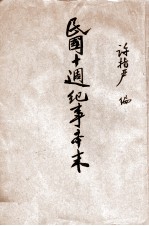 許指严 编
民國十週紀事本末